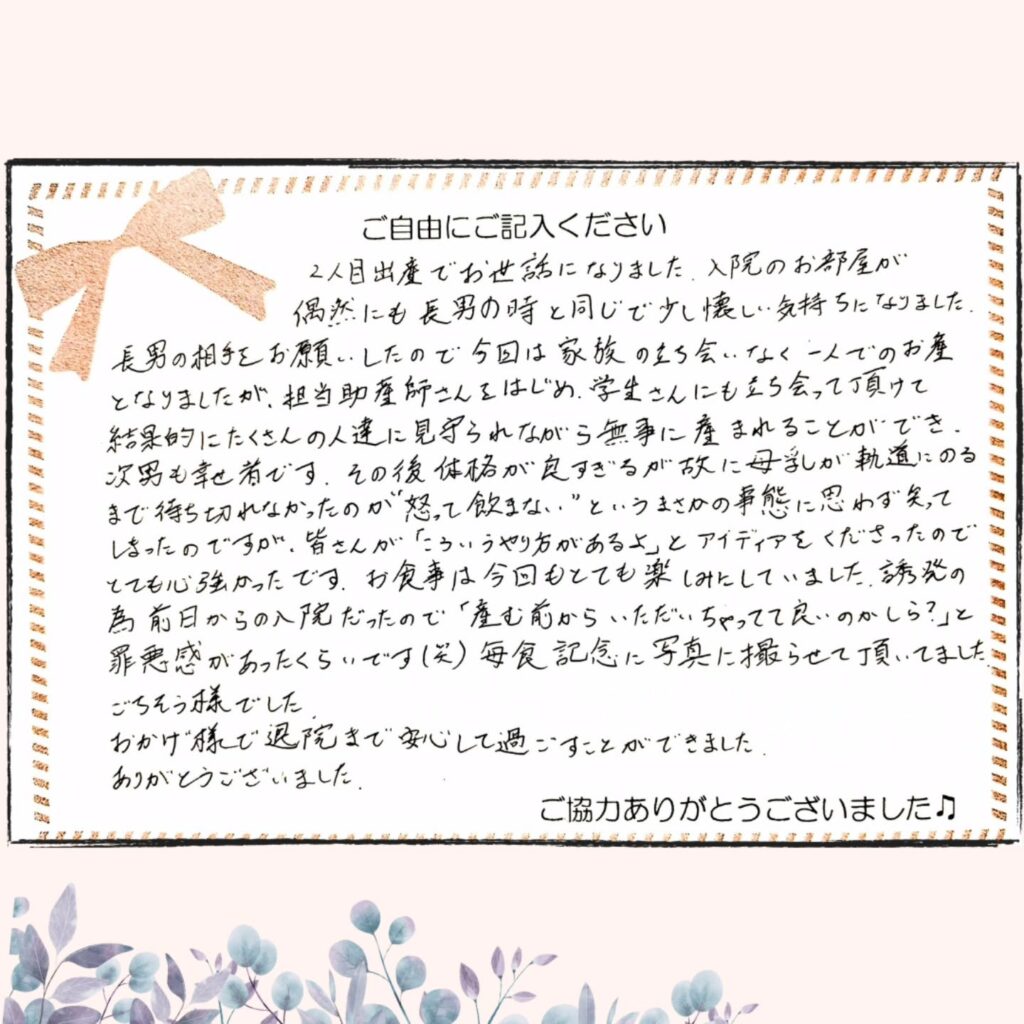 ご自由にご記入ください
2人目出産でお世話になりました。入院のお部屋が
偶然にも長男の時と同じで少し懐しい気持ちになりました。
長男の相手をお願いしたので今回は家族の立ち会いなく一人でのお産
となりましたが、担当助産師さんをはじめ、学生さんにも立ち会って頂けて
結果的にたくさんの人達に見守られながら無事に産まれることができ、
次男も幸せ者です。その後体格が良すぎるが故に母乳が軌道にのる
まで待ち切れなかったのが“怒って飲まない”というまさかの事態に思わず笑って
しまったのですが、皆さんが「こういうやり方があるよ」とアイディアをくださったので
とても心強かったです。お食事は今回もとても楽しみにしていました。誘発の
為前日からの入院だったので「産む前からいただいちゃってて良いのかしら?」と
罪悪感があったくらいです(笑)毎食記念に写真に撮らせて頂いてました。
ごちそう様でした。
おかげ様で退院まで安心して過ごすことができました。
ありがとうございました。
ご協力ありがとうございました♫